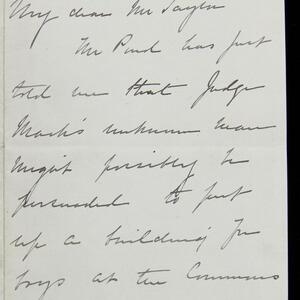 My dear Mr Taylor
Mr Pond has just
told me that Judge
Mack's unknown man
might possibly be
persuaded to put
up a building for
boys at the Commons